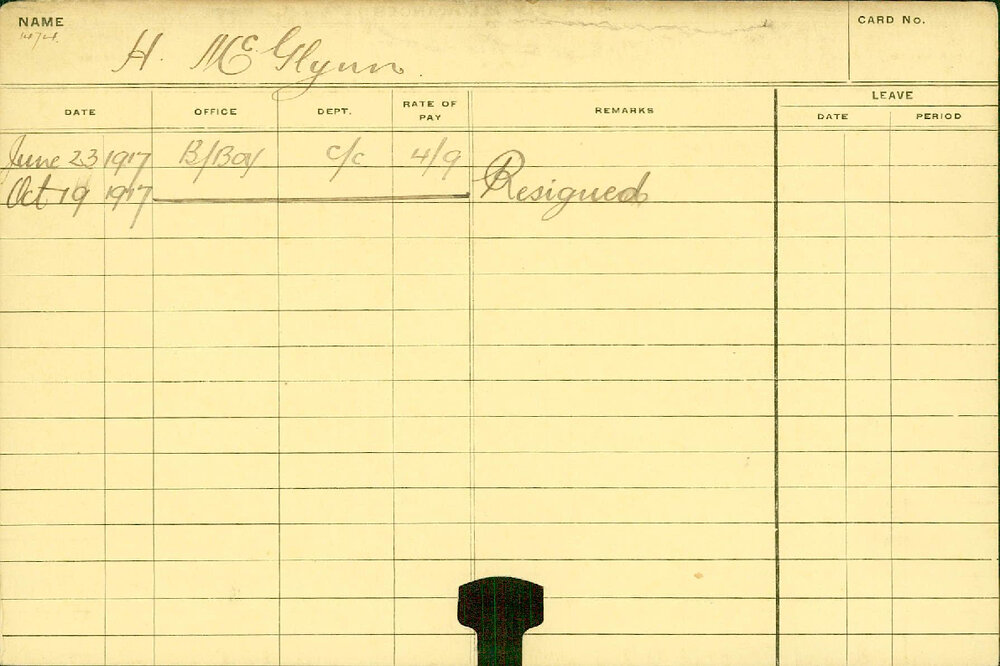 NAME
CARD No.
H. McGlynn
LEAVE
DATE OFFICE DEPT. RATE OF PAY REMARKS DATE PERIOD
June 23 1917 B/Boy c/c 4/9
Oct 19 1917 Resigned